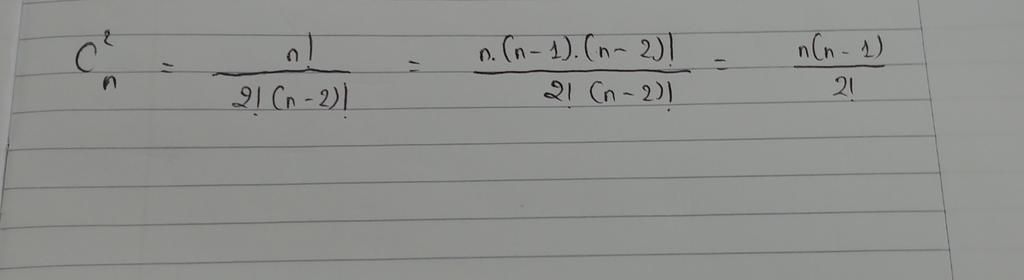 C²ₙ = n! / 2!(n-2)! = n.(n-1).(n-2)! / 2!(n-2)! = n(n-1) / 2!